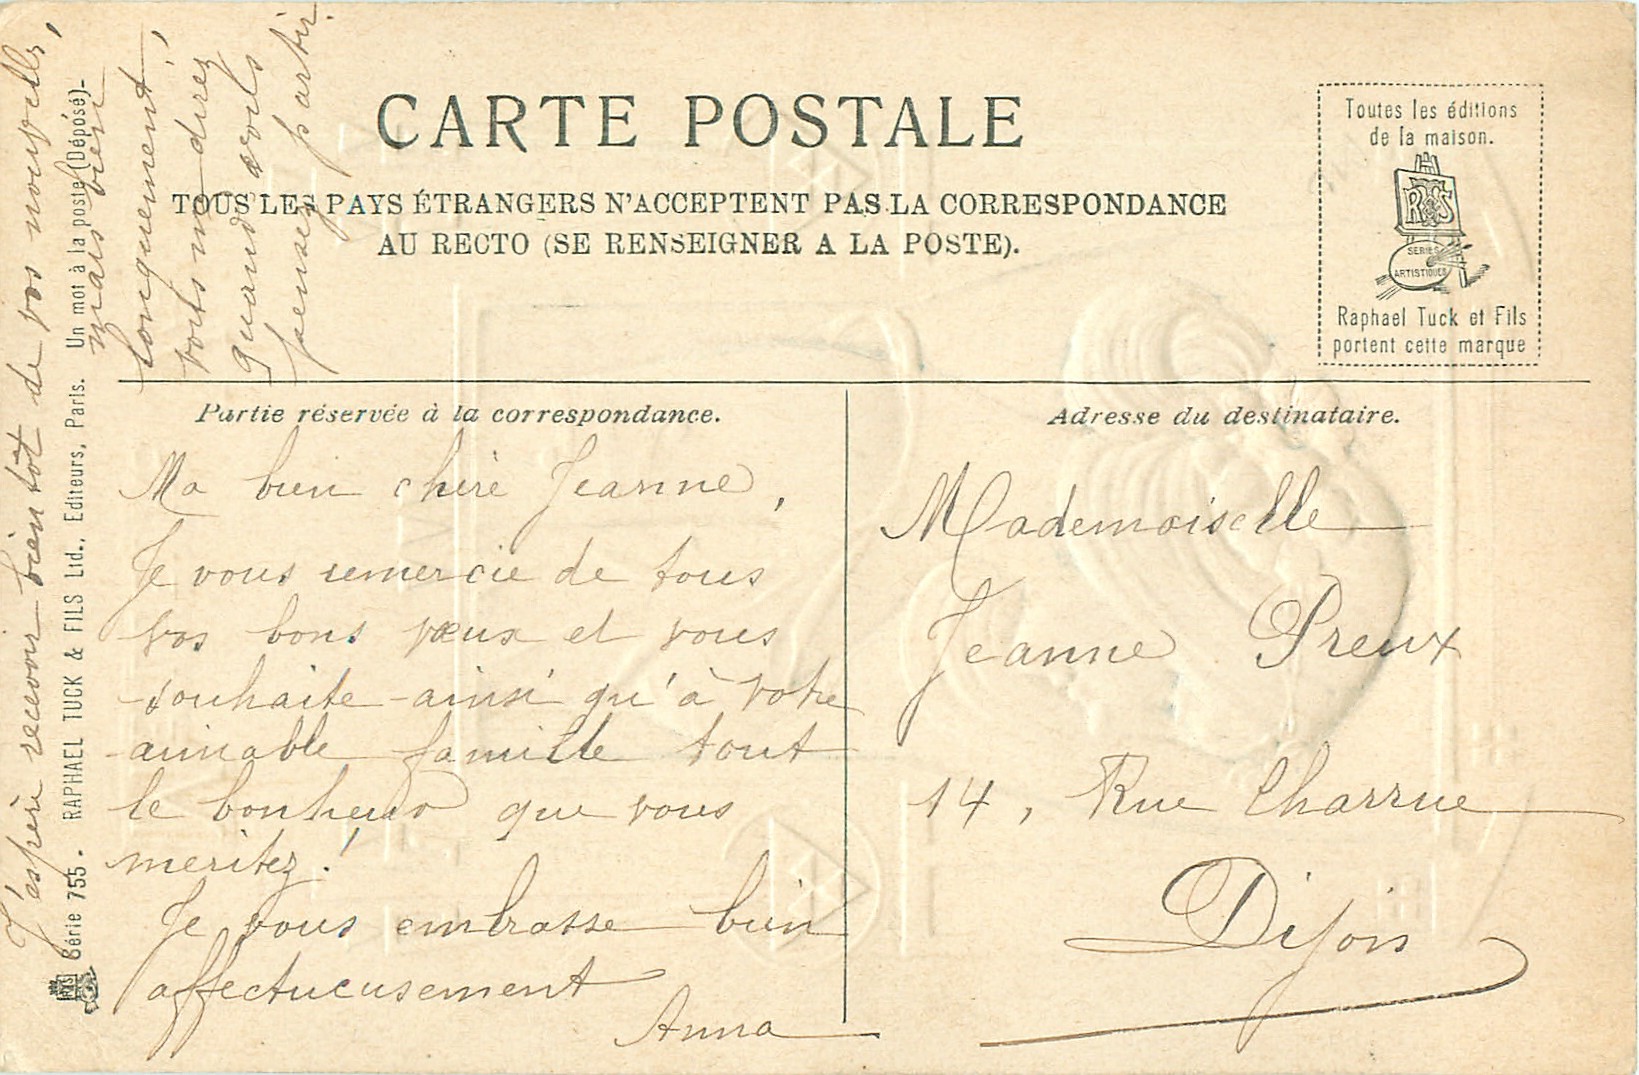 CARTE POSTALE
TOUS LES PAYS ÉTRANGERS N'ACCEPTENT PAS LA CORRESPONDANCE
AU RECTO (SE RENSEIGNER A LA POSTE).
Toutes les éditions
de la maison.
RTS
SERIES
ARTISTIQUES
Raphael Tuck et Fils
portent cette marque
Partie réservée à la correspondance.
Ma bien chère Jeanne,
Je vous remercie de tous
vos bons vœux et vous
souhaite ainsi qu'à votre
aimable famille tout
le bonheur que vous
meritez!
Je vous embrasse bien
affectueusement
Anna
Adresse du destinataire.
Mademoiselle
Jeanne Preux
14, Rue Charrue
Dijon
J'espère recevoir bientôt de vos nouvelles,
mais bien
longuement!
vous me direz
quand vous
pensez partir
Série 755. RAPHAEL TUCK & FILS Ltd., Editeurs, Paris. Un mot à la poste (Déposé)